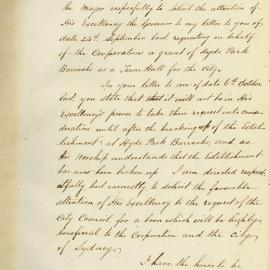 the Mayor respectfully to solicit the attention of
His Excellency the Governor to my letter to you of
date 24th September last, requesting on behalf
of the Corporation a grant of Hyde Park
Barracks as a Town Hall for the City.
In your letter to me of date 6th October
last, you state that it will not be in His
Excellency's power to take this request into consi-
deration until after the breaking up of the Estab-
lishment at Hyde Park Barracks, and as
His Worship understands that the Establishment
has now been broken up I am directed respect-
fully but earnestly to solicit the favorable
attention of His Excellency to the request of the
City Council for a boon which will be highly
beneficial to the Corporation and the City
of Sydney.
I have the honor to be